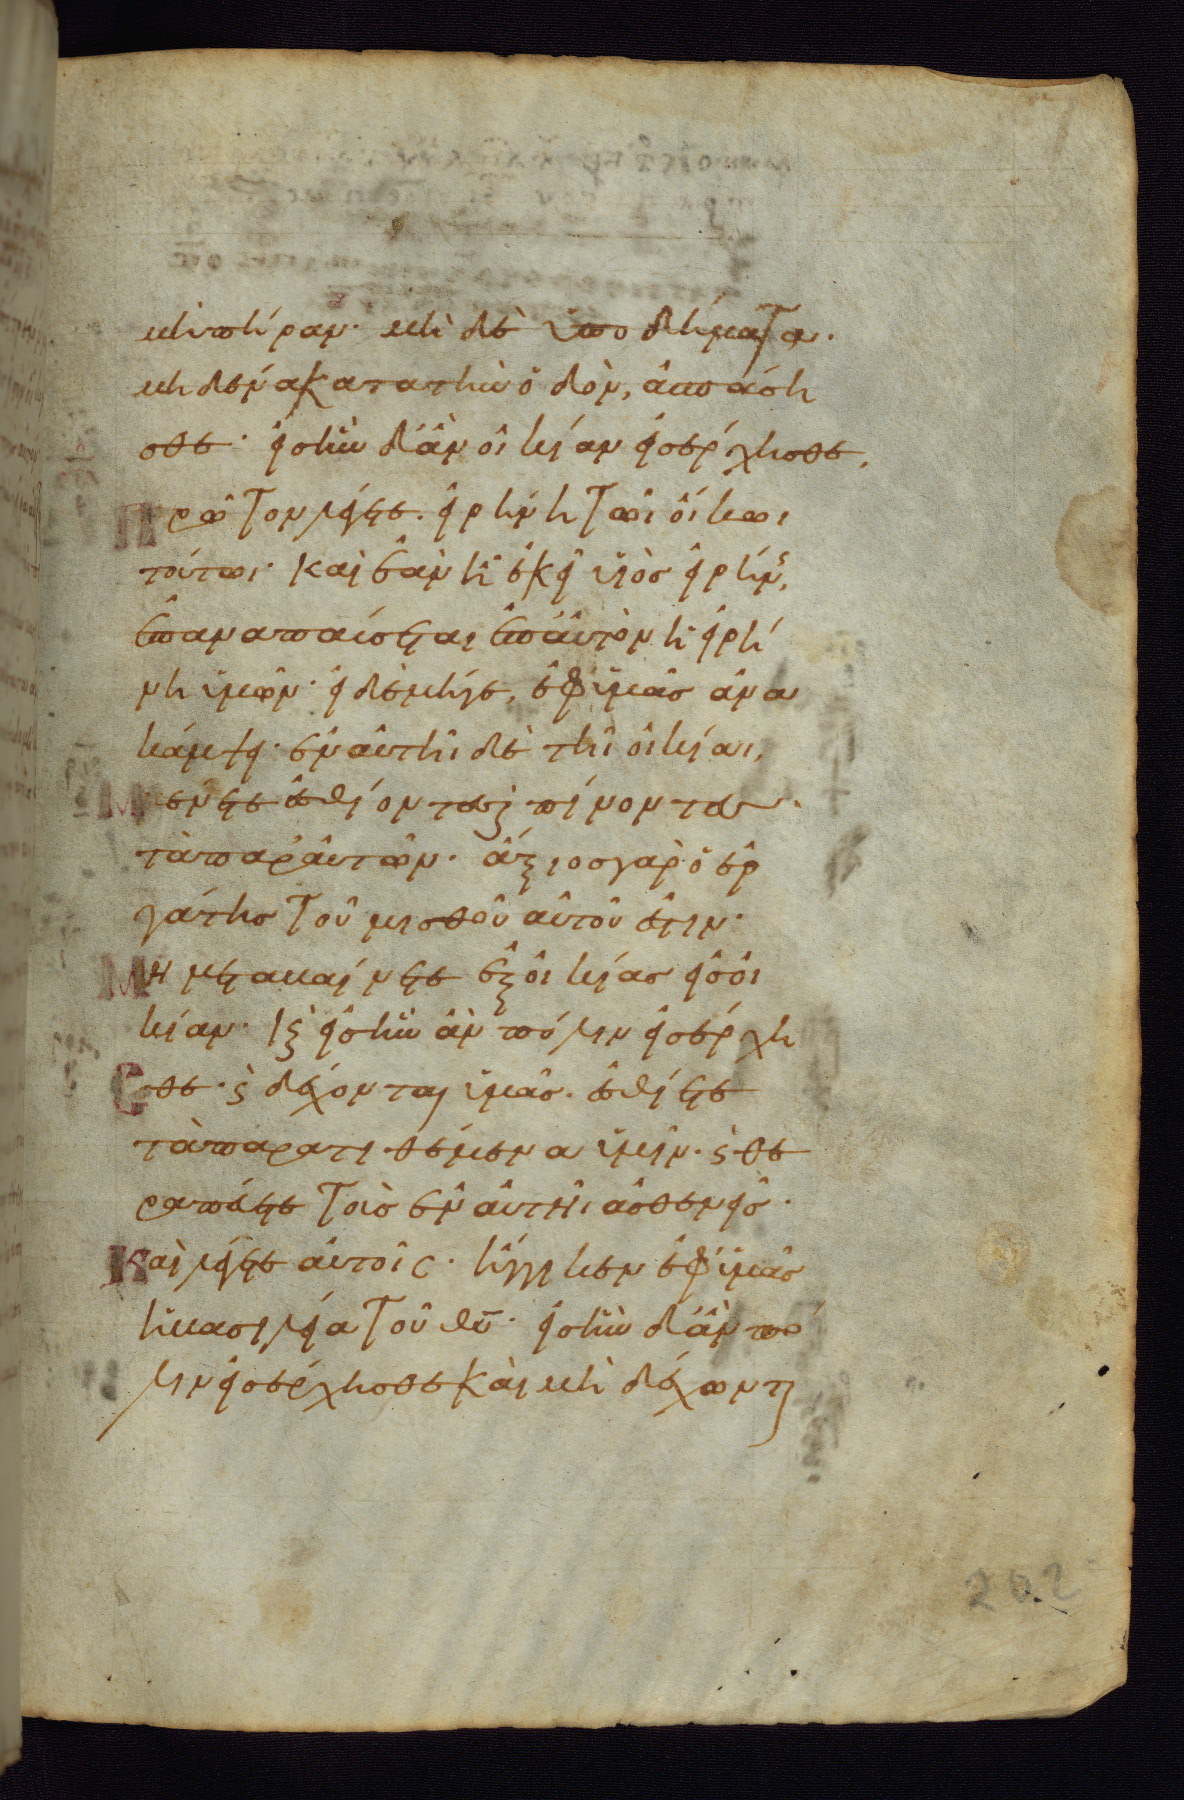 μὴ πήραν· μὴ δὲ ὑποδήματα·
μηδένα κατὰ τὴν ὁδὸν, ἀσπάση
σθε· εἰς ἣν δ' ἂν οἰκίαν εἰσέρχησθε,
πρῶτον λέγετε· εἰρήνη τῶι οἴκωι
τούτωι· καὶ ἐὰν ἦ ἐκεῖ υἱὸς εἰρήνης,
ἐπαναπαύσεται ἐπ' αὐτὸν ἡ εἰρή
νη ὑμῶν· εἰ δὲ μήγε, ἐφ' ὑμᾶς ἀνα
κάμψει· ἐν αὐτῆι δὲ τῆι οἰκίαι,
μένετε ἐσθίοντες ϗ πίνοντες
τὰ παρ' αὐτῶν· ἄξιος γὰρ ὁ ἐρ
γάτης τοῦ μισθοῦ αὐτοῦ ἐστιν·
Μὴ μεταβαίνετε ἐξ οἰκίας εἰς οἰ
κίαν· ϗ εἰς ἣν ἂν πόλιν εἰσέρχη
σθε· ϗ δέχονται ὑμᾶς· ἐσθίετε
τὰ παρατιθέμενα ὑμῖν· ϗ θε
ραπεύετε τοὺς ἐν αὐτῆι ἀσθενεῖς·
Καὶ λέγετε αὐτοῖς· ἤγγικεν ἐφ' ὑμᾶς
ἡ βασιλεία τοῦ θυ· εἰς ἣν δ' ἂν πό
λιν εἰσέρχησθε καὶ μὴ δέχωνται
202